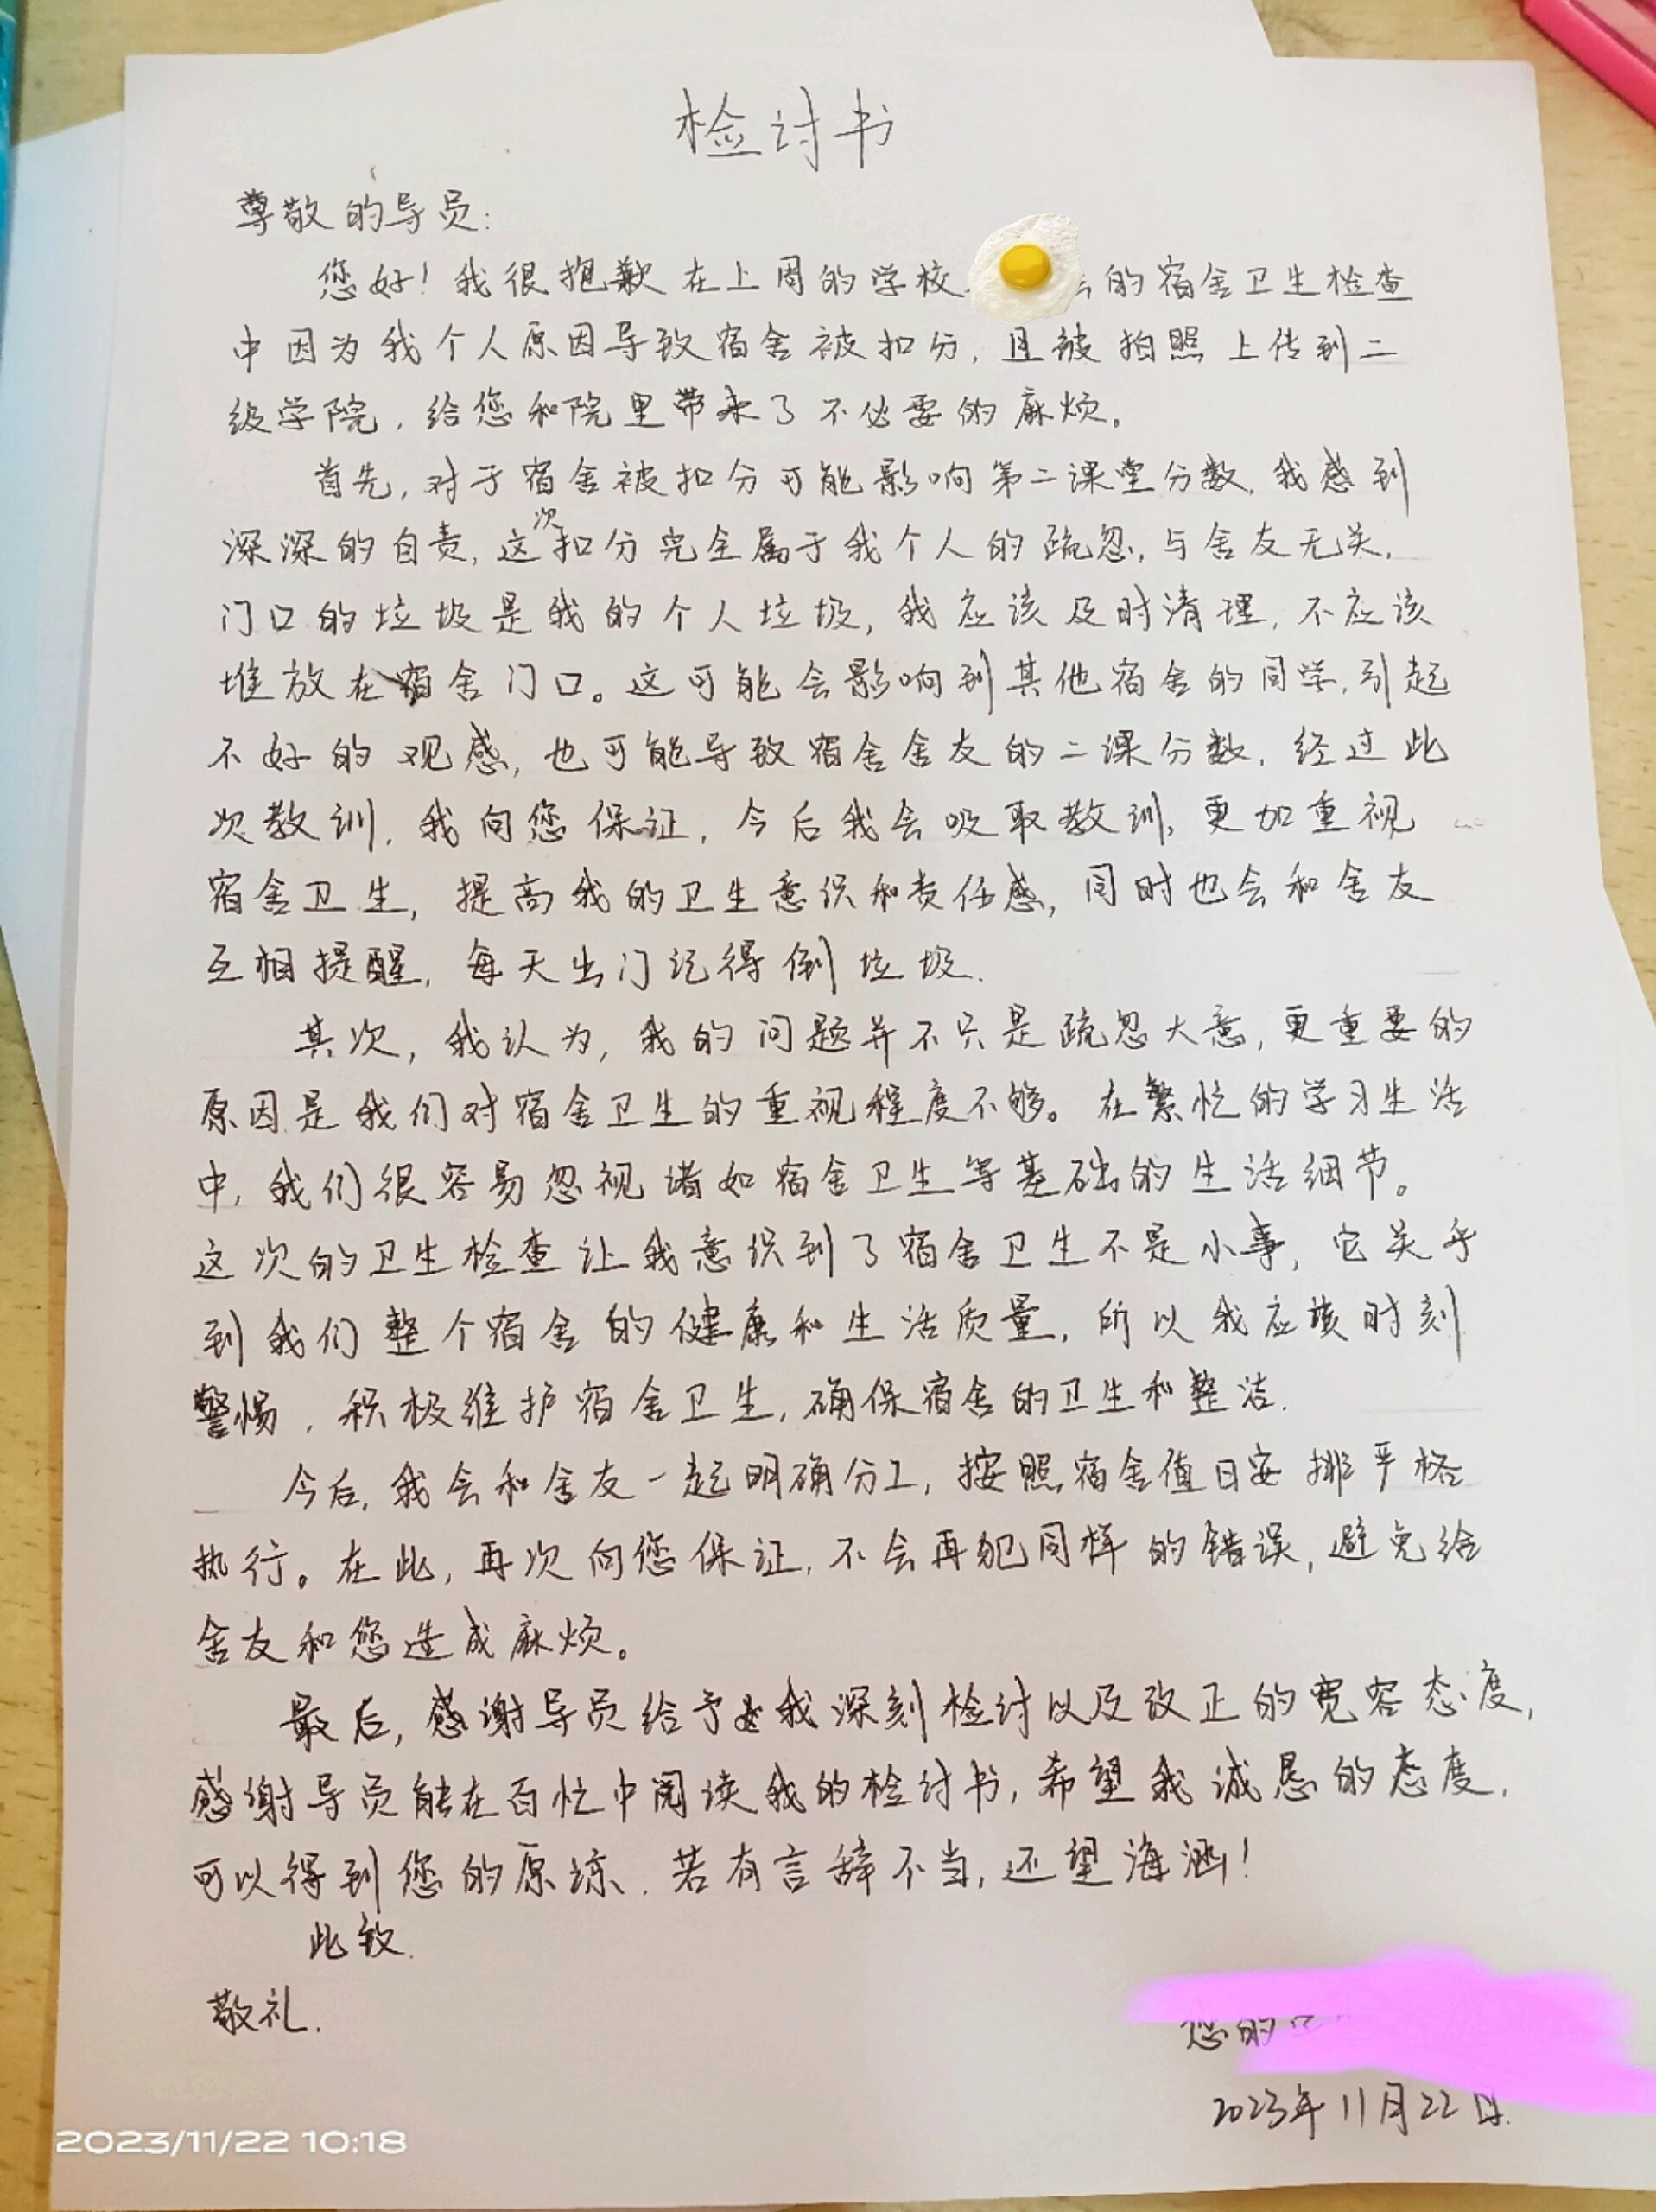 检讨书
尊敬的导员:
您好!我很抱歉在上周的学校 的宿舍卫生检查
中因为我个人原因导致宿舍被扣分,且被拍照上传到二
级学院,给您和院里带来了不必要的麻烦。
首先,对于宿舍被扣分可能影响第二课堂分数,我感到
深深的自责,这次扣分完全属于我个人的疏忽,与舍友无关.
门口的垃圾是我的个人垃圾,我应该及时清理,不应该
堆放在宿舍门口。这可能会影响到其他宿舍的同学,引起
不好的观感,也可能导致宿舍舍友的二课分数.经过此
次教训,我向您保证,今后我会吸取教训,更加重视
宿舍卫生,提高我的卫生意识和责任感,同时也会和舍友
互相提醒,每天出门记得倒垃圾.
其次,我认为,我的问题并不只是疏忽大意,更重要的
原因是我们对宿舍卫生的重视程度不够。在繁忙的学习生活
中,我们很容易忽视诸如宿舍卫生等基础的生活细节。
这次的卫生检查让我意识到了宿舍卫生不是小事,它关乎
到我们整个宿舍的健康和生活质量,所以我应该时刻
警惕,积极维护宿舍卫生,确保宿舍的卫生和整洁.
今后,我会和舍友一起明确分工,按照宿舍值日安排严格
执行。在此,再次向您保证,不会再犯同样的错误,避免给
舍友和您造成麻烦。
最后,感谢导员给予我深刻检讨以及改正的宽容态度,
感谢导员能在百忙中阅读我的检讨书,希望我诚恳的态度,
可以得到您的原谅.若有言辞不当,还望海涵!
此致.
敬礼.
您的
2023年11月22日.
2023/11/22 10:18